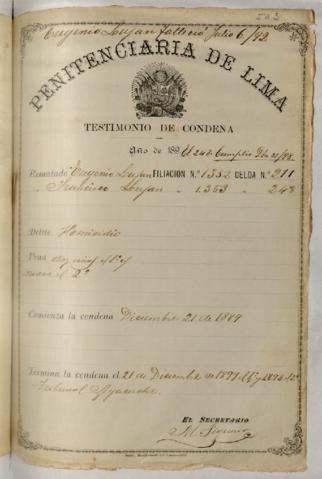 553
Eugenio Lujan falleció Julio 6/92
PENITENCIARIA DE LIMA
TESTIMONIO DE CONDENA
Año de 189 El 24 de Cumplio Dbe 21/98
Rematado Eugenio Lujan FILIACION N.º 1352 CELDA N.º 211
" Francisco Lujan " 1.353 " 248
Delito Homicidio
Pena diez años el 1º y
nueve el 2º
Comienza la condena Diciembre 21 de 1889
Termina la condena el 21 de Diciembre de 1899 el 1º y 1898 el 2º
Tribunal Ayacucho
EL SECRETARIO